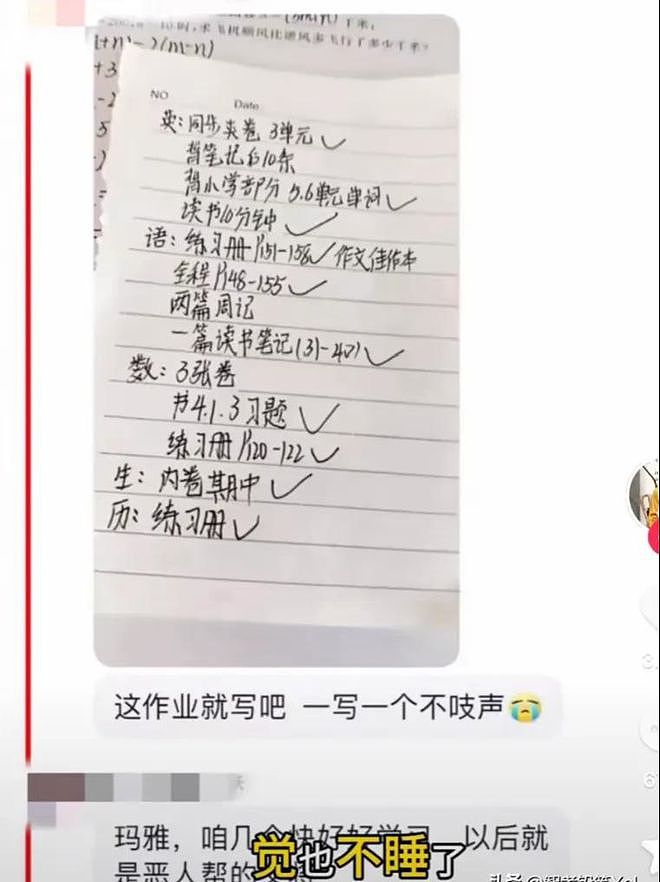 时,求飞机顺风比逆风多飞行了多少千米?
NO
Date
英:同步夹卷 3单元✓
暂笔记6 10条
背小学部分 5.6单元单词✓
读书10分钟✓
语:练习册P151-158✓作文佳作本
全程P148-155✓
两篇周记
一篇读书笔记(31-40)✓
数:3张卷
书4.1.3习题✓
练习册P120-122✓
生:内卷期中✓
历:练习册✓
这作业就写吧 一写一个不吱声😭
玛雅,咱几个快好好学习,以后就
是恶人帮的
觉也不睡了